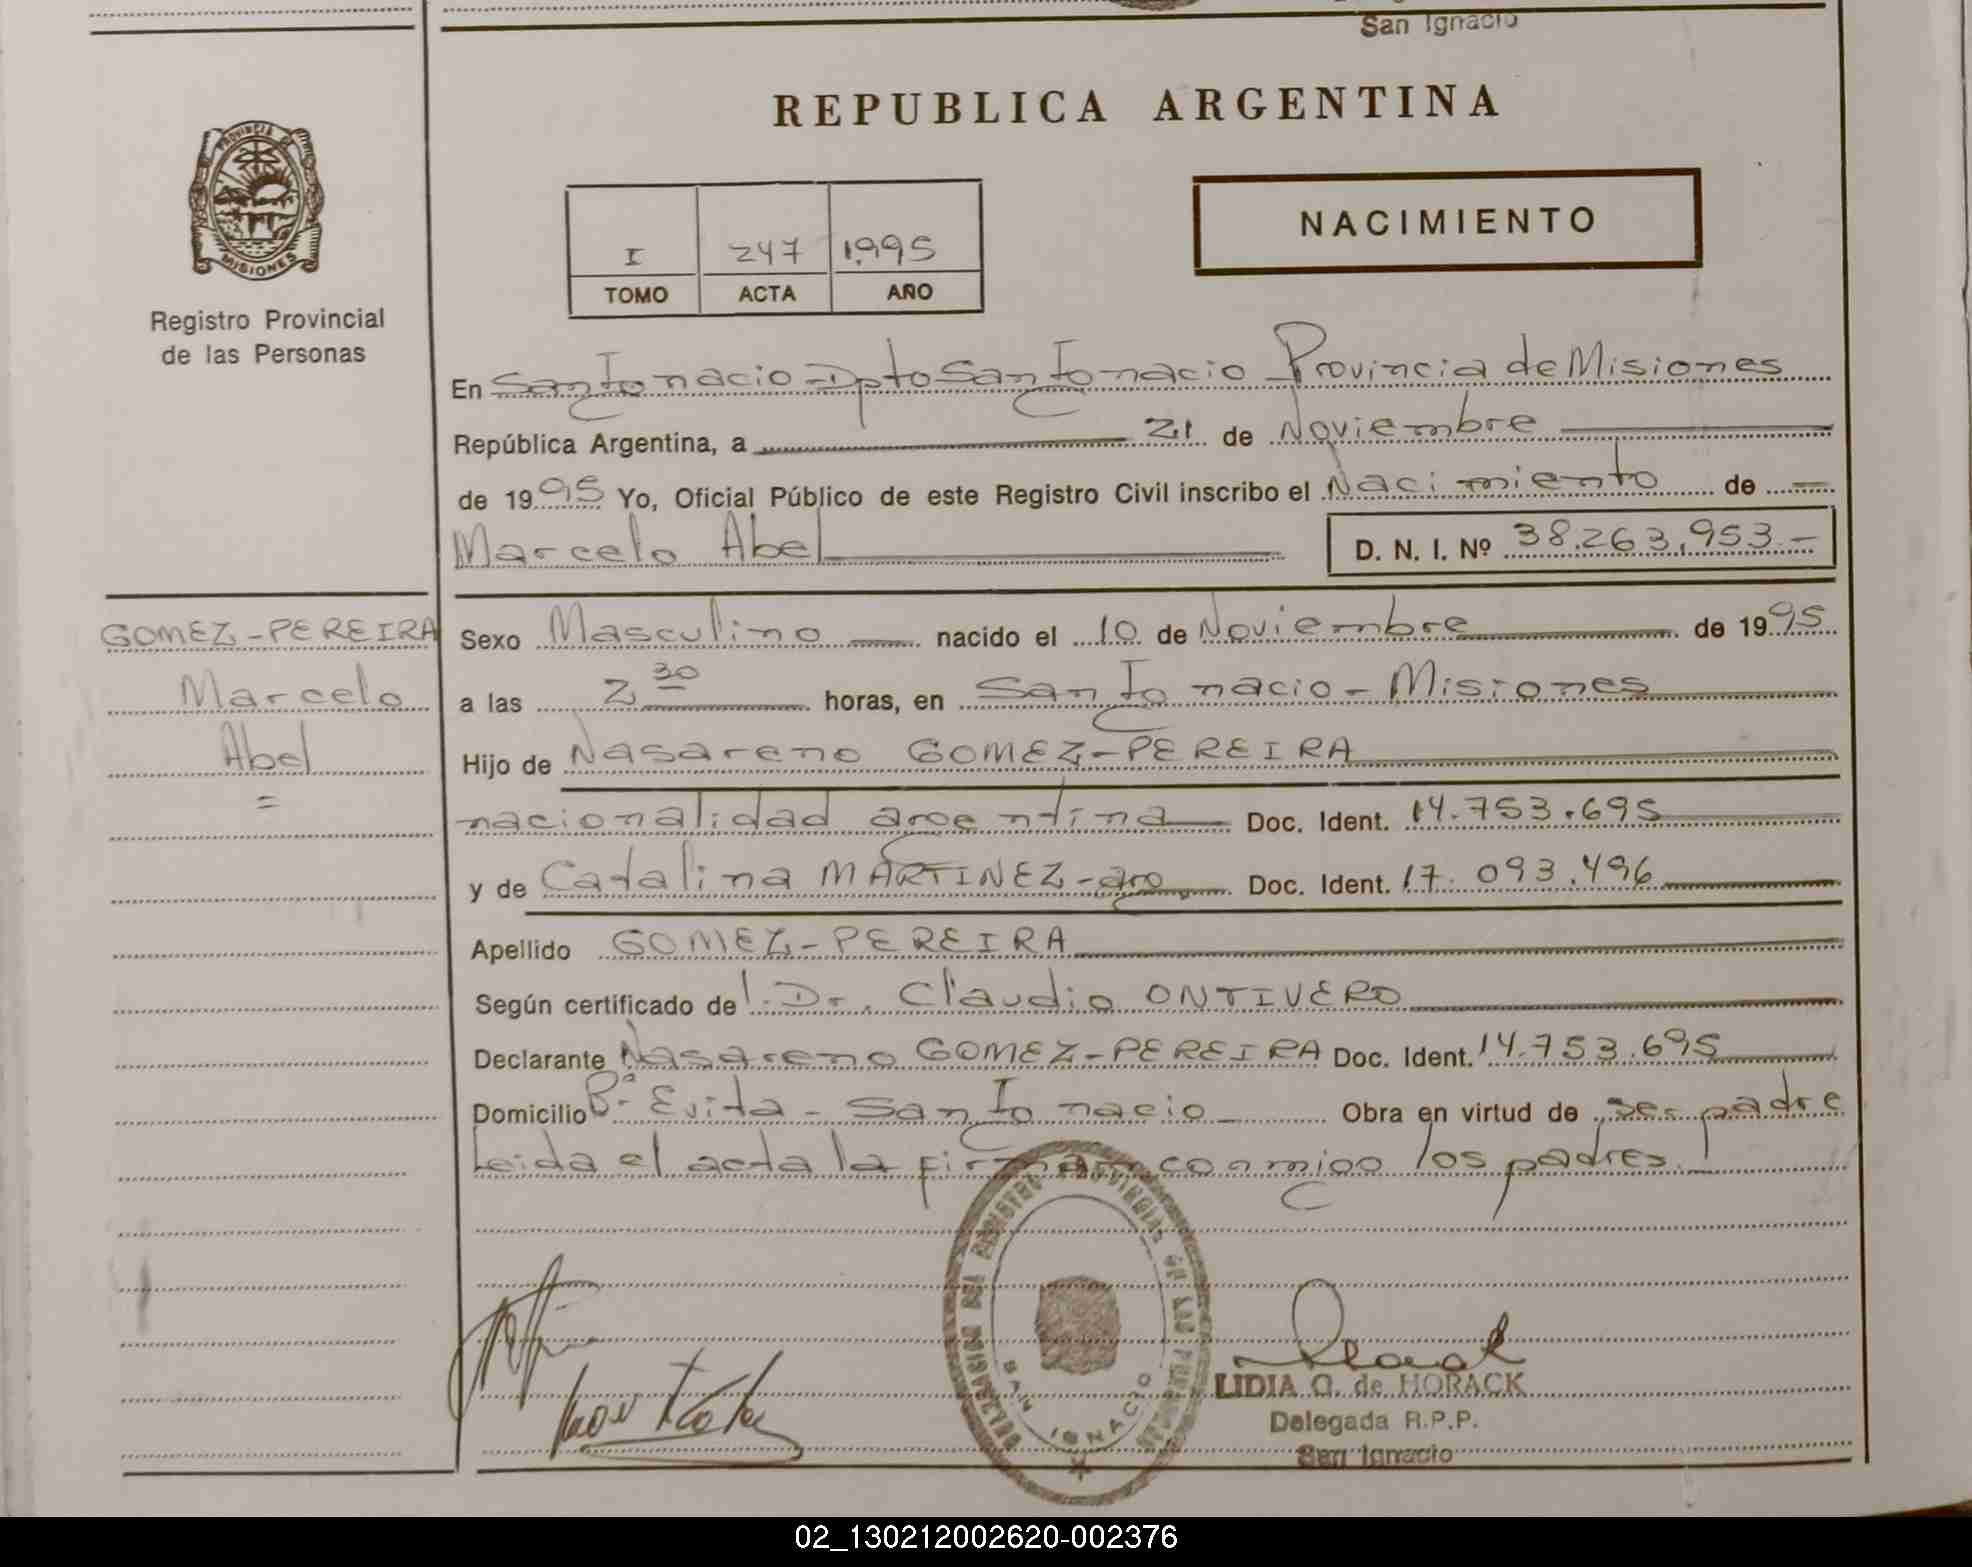 San Ignacio
REPUBLICA ARGENTINA
PROVINCIA DE
MISIONES
Registro Provincial
de las Personas
NACIMIENTO
I 247 1995
TOMO ACTA AÑO
En San Ignacio - Dpto San Ignacio Provincia de Misiones
República Argentina, a 21 de Noviembre
de 1995 Yo, Oficial Público de este Registro Civil inscribo el Nacimiento de
Marcelo Abel D. N. I. Nº 38.263,953.-
GOMEZ-PEREIRA
Marcelo
Abel
=
Sexo Masculino nacido el 10 de Noviembre de 1995
a las 2 30 horas, en San Ignacio - Misiones
Hijo de Nasareno GOMEZ-PEREIRA
nacionalidad argentina Doc. Ident. 14.753.695
y de Catalina MARTINEZ-arg. Doc. Ident. 17.093.496
Apellido GOMEZ-PEREIRA
Según certificado de Dr. Claudio ONTIVERO
Declarante Nasareno GOMEZ-PEREIRA Doc. Ident. 14.753.695
Domicilio Bº Evita - San Ignacio Obra en virtud de ser padre
Leida el acta la firman conmigo los padres.
DELEGACION DEL REGISTRO PROVINCIAL DE LAS PERSONAS
SAN IGNACIO
LIDIA G. de HORACK
Delegada R.P.P.
San Ignacio
02_130212002620-002376